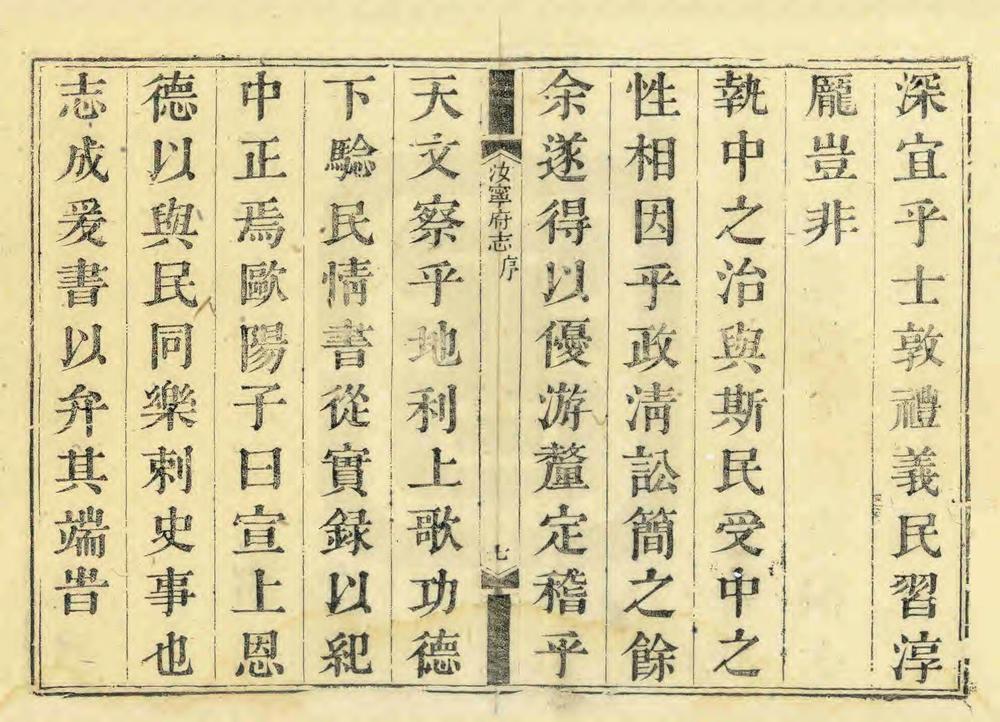 深宜乎士敦禮義民習淳
龐豈非
執中之治與斯民受中之
性相因乎政清訟簡之餘
余遂得以優游釐定稽乎
汝寧府志 序 七
天文察乎地利上歌功德
下驗民情書從實録以紀
中正焉歐陽子曰宣上恩
德以與民同樂刺史事也
志成爰書以弁其端旹